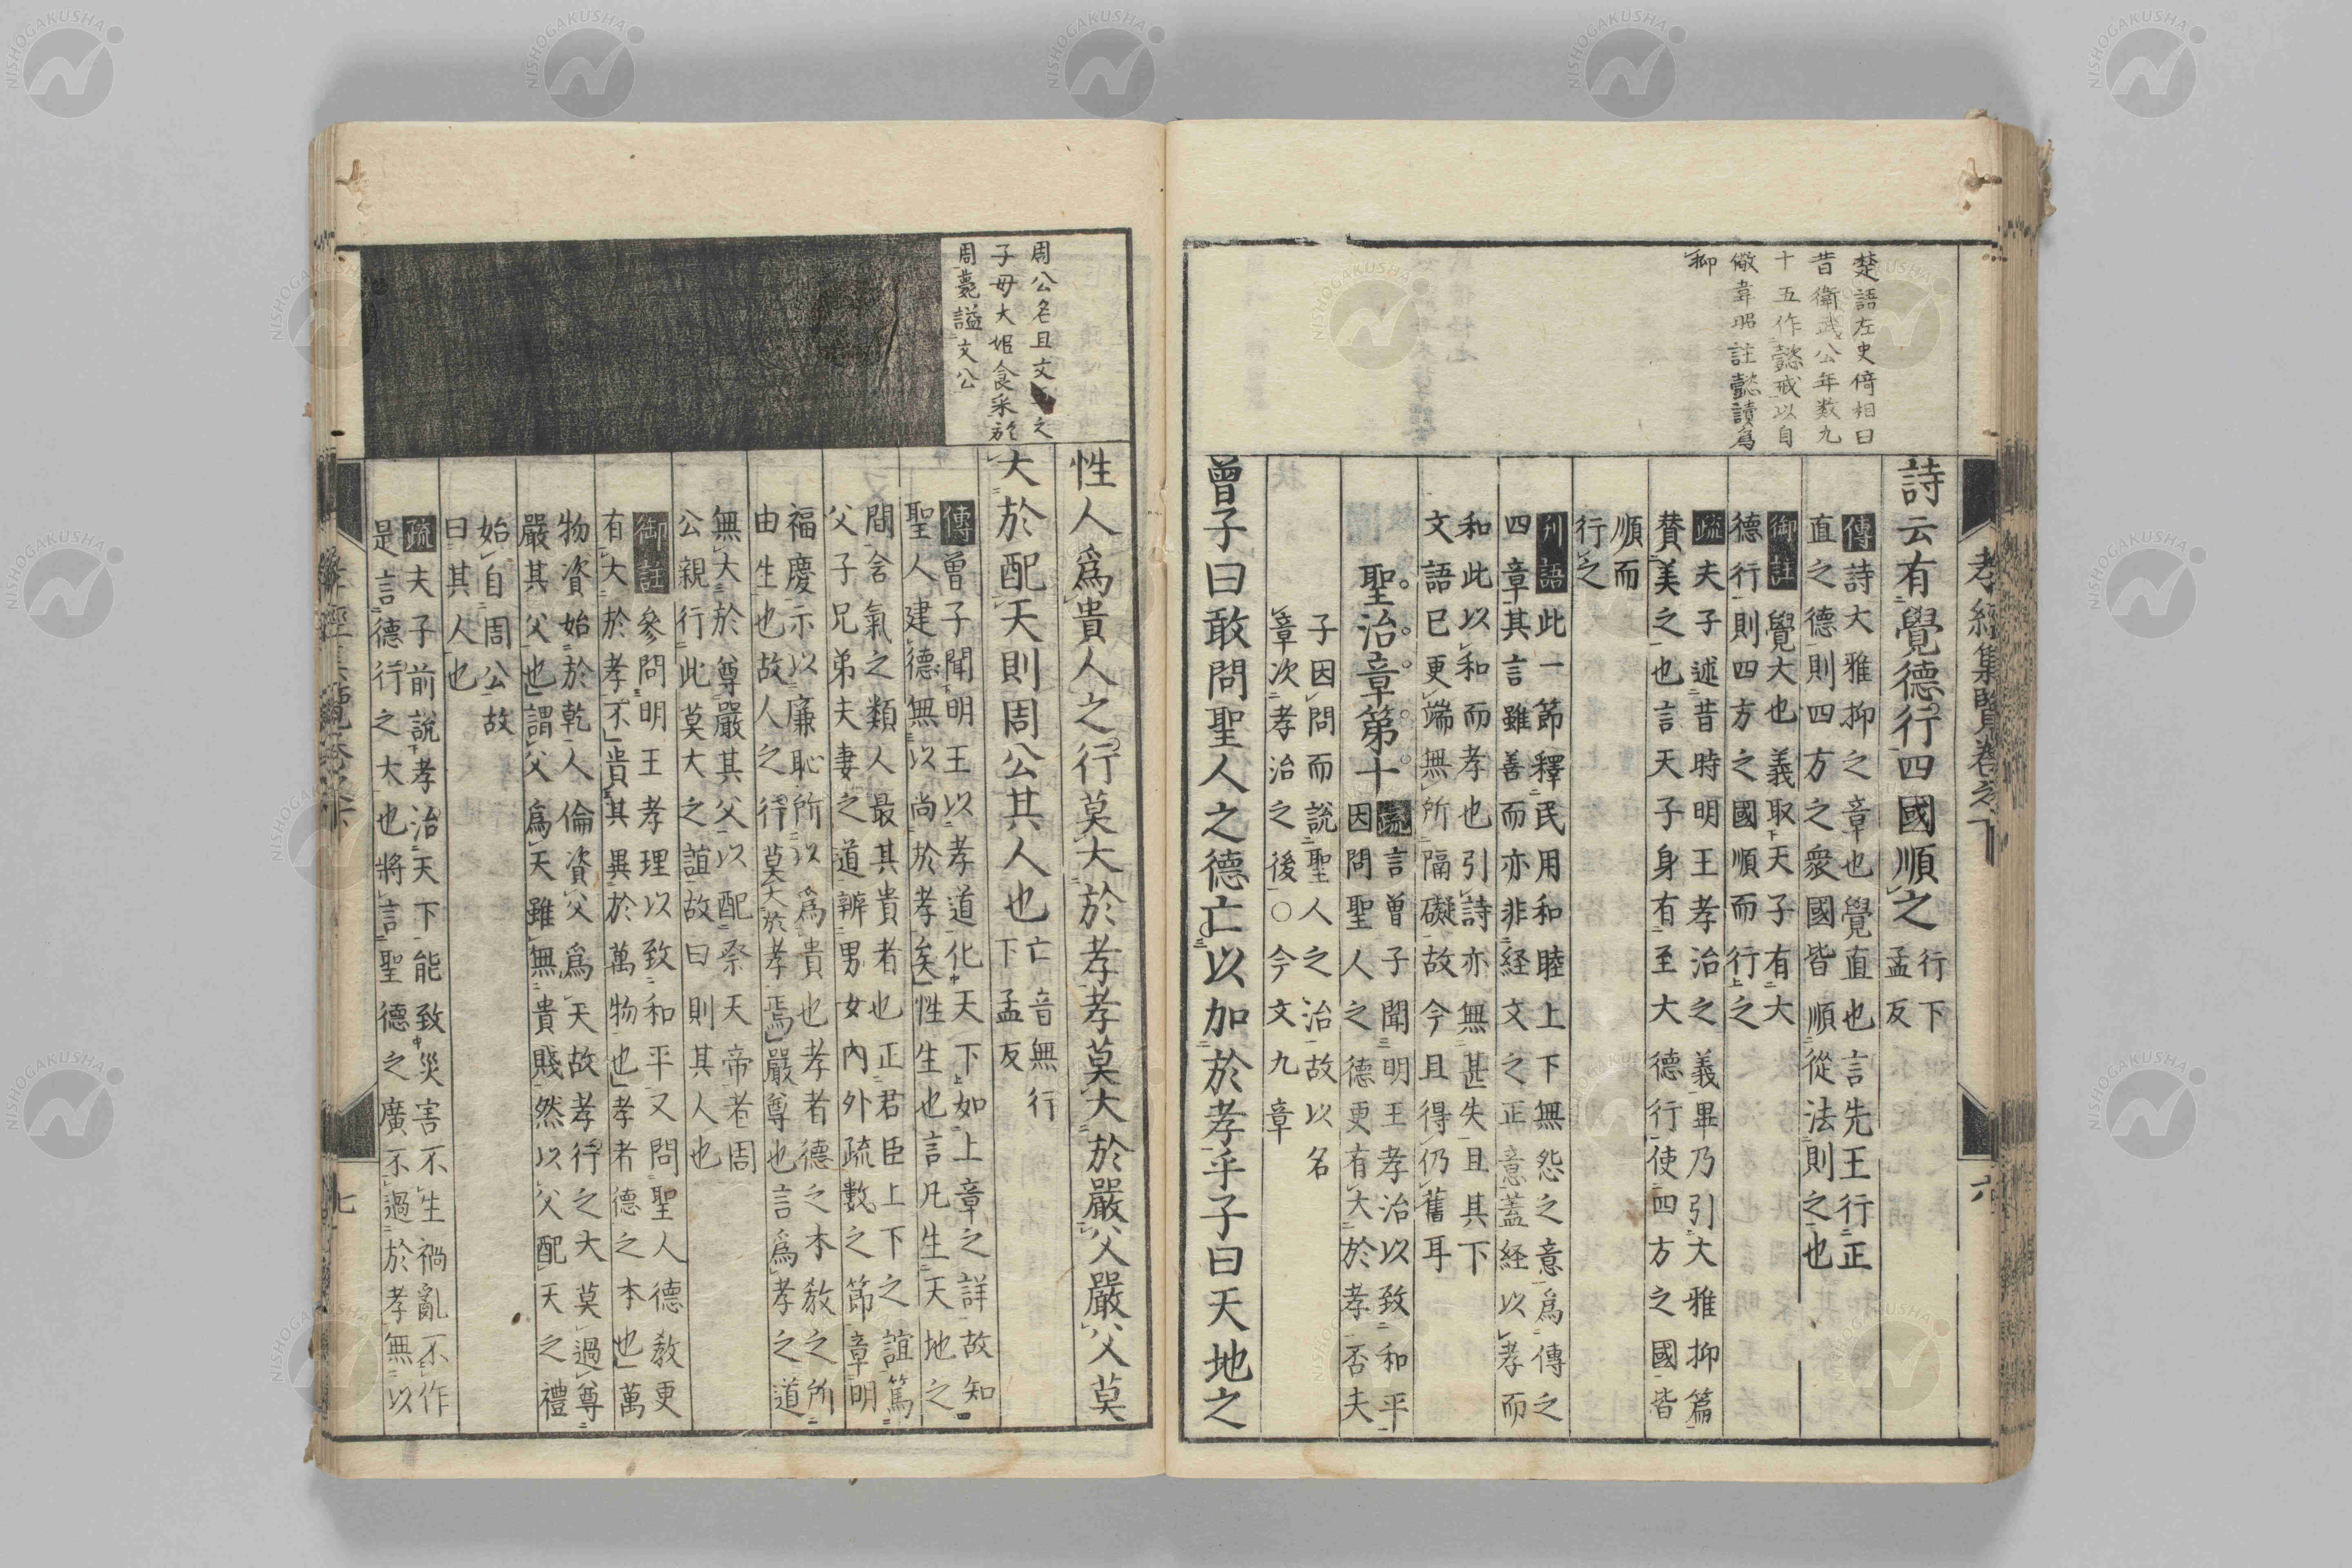 孝經集覽卷之下
六
楚語左史倚相曰
昔衛武公年数九
十五作懿戒以自
儆韋昭註懿讀爲
抑
詩云有覺德行四國順之
行下
孟反
傳詩大雅抑之章也覺直也言先王行正
直之德則四方之衆國皆順從法則之也
御註覺大也義取天子有大
德行則四方之國順而行之
疏夫子述昔時明王孝治之義畢乃引大雅抑篇
賛美之也言天子身有至大德行使四方之國皆
順而
行之
刋語此一節釋民用和睦上下無怨之意爲傳之
四章其言雖善而亦非経文之正意蓋経以孝而
和此以和而孝也引詩亦無甚失且其下
文語已更端無所隔礙故今且得仍舊耳
聖治章第十
疏言曾子聞明王孝治以致和平
因問聖人之德更有大於孝否夫
子因問而説聖人之治故以名
章次孝治之後○今文九章
曾子曰敢問聖人之德亡以加於孝乎子曰天地之
周公名旦文之
子母大姬食采於
周薨謚文公
性人爲貴人之行莫大於孝孝莫大於嚴父嚴父莫
大於配天則周公其人也
亡音無行
下孟反
傳曾子聞明王以孝道化天下如上章之詳故知
聖人建德無以尚於孝矣性生也言凡生天地之
間含氣之類人最其貴者也正君臣上下之誼篤
父子兄弟夫妻之道辨男女內外疏數之節章明
福慶示以廉恥所以爲貴也孝者德之本敎之所
由生也故人之行莫大於孝焉嚴尊也言爲孝之道
無大於尊嚴其父以配祭天帝者周
公親行此莫大之誼故曰則其人也
御註參問明王孝理以致和平又問聖人德敎更
有大於孝不貴其異於萬物也孝者德之本也萬
物資始於乾人倫資父爲天故孝行之大莫過尊
嚴其父也謂父爲天雖無貴賤然以父配天之禮
始自周公故
曰其人也
疏夫子前說孝治天下能致災害不生禍亂不作
是言德行之大也將言聖德之廣不過於孝無以
七